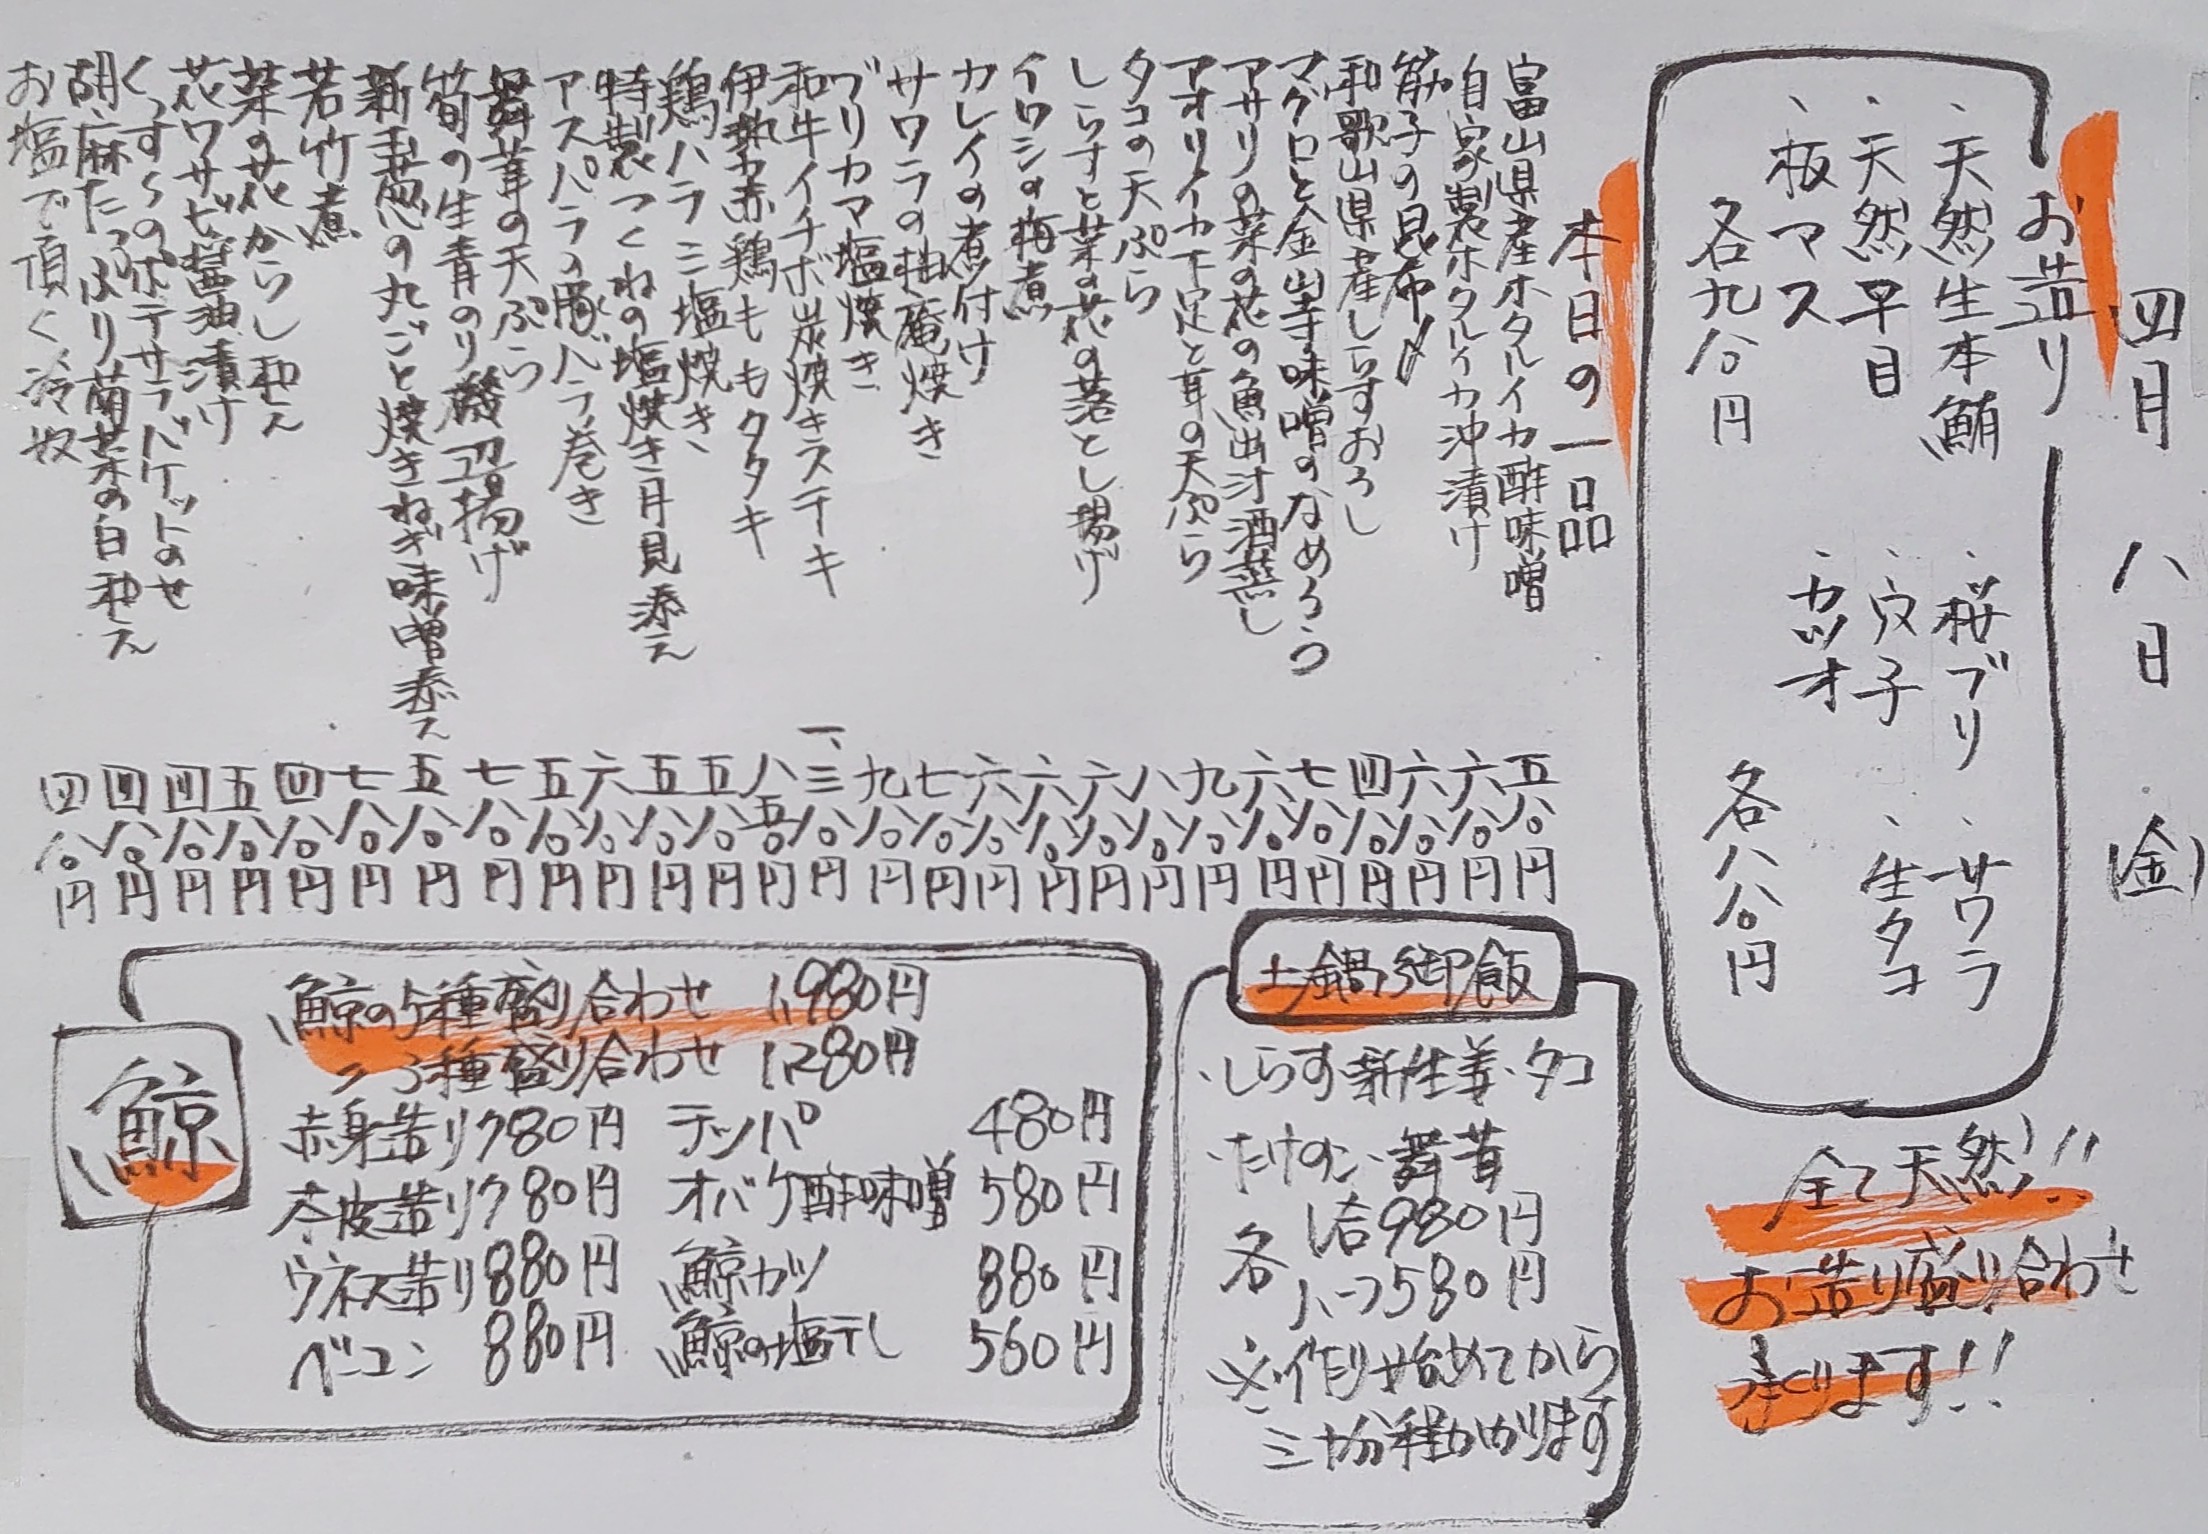 四月八日(金)
お造り
、天然生本鮪 、桜ブリ 、サワラ
、天然平目 、穴子 、生タコ
、板マス 、カツオ
各九八〇円 各八八〇円
全て天然!!
お造り盛り合わせ
承ります!!
本日の一品
富山県産ホタルイカ酢味噌 五八〇円
自家製ホタルイカ沖漬け 六八〇円
筋子の昆布〆 六八〇円
和歌山県産しらすおろし 四八〇円
マグロと金山寺味噌のなめろう 七八〇円
アサリの菜の花の魚出汁酒蒸し 六八〇円
アオリイカ下足と茸の天ぷら 九八〇円
タコの天ぷら 八八〇円
しらすと菜の花の落とし揚げ 六八〇円
イワシの梅煮 六八〇円
カレイの煮付け 六八〇円
サワラの柚庵焼き 七八〇円
ブリカマ塩焼き 九八〇円
和牛イチボ炭焼きステーキ 一、三八〇円
伊勢赤鶏ももタタキ 八五〇円
鶏ハラミ塩焼き 五八〇円
特製つくねの塩焼き月見添え 五八〇円
アスパラの豚バラ巻き 六八〇円
舞茸の天ぷら 五八〇円
筍の生青のり磯辺揚げ 七八〇円
新玉葱の丸ごと焼きねぎ味噌添え 五八〇円
若竹煮 七八〇円
菜の花からし和え 四八〇円
花ワサビ醤油漬け 五八〇円
くずしのポテサラバケットのせ 四八〇円
胡麻たっぷり菊菜の白和え 四八〇円
お塩で頂く冷奴 四八〇円
土鍋御飯
・しらす・新生姜・タコ
・たけのこ・舞茸
各 1合980円
ハーフ580円
※作り始めてから
三十分程かかります
鯨
鯨の5種盛り合わせ 1,980円
〃3種盛り合わせ 1,280円
赤身造り 780円 テッパ 480円
本皮造り 780円 オバケ酢味噌 580円
ウネス造り 880円 鯨カツ 880円
ベーコン 880円 鯨の塩干し 560円